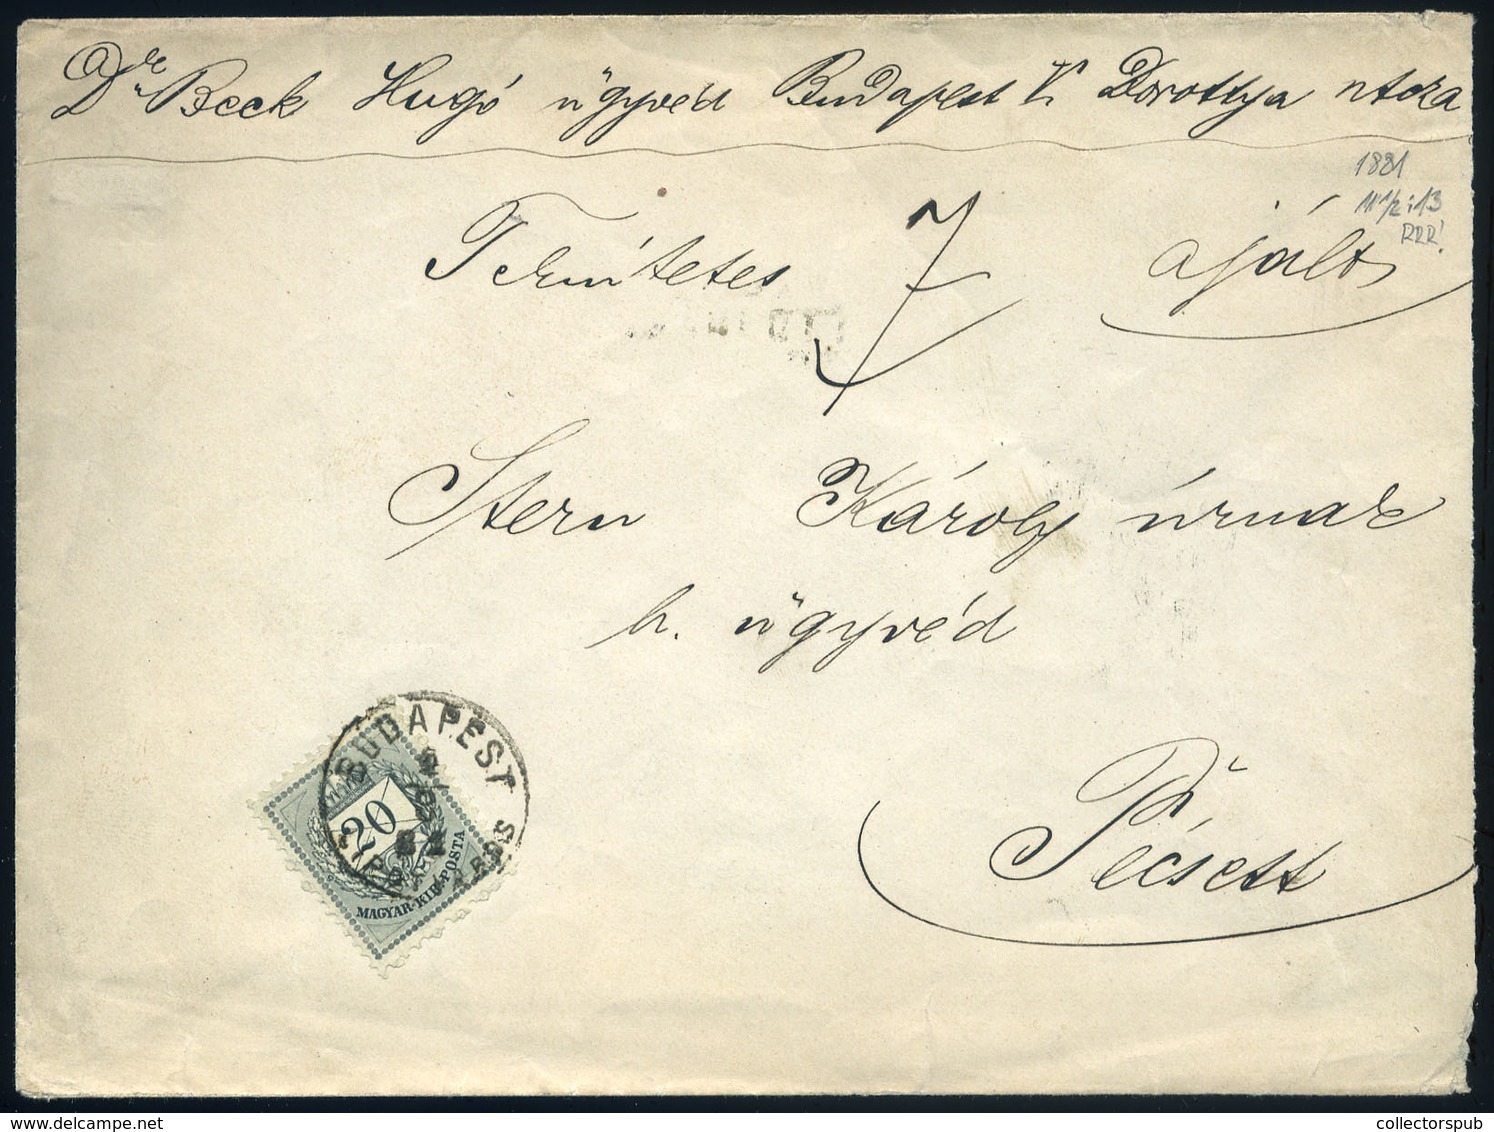 Dr Beck Hugó ügyvéd Budapest V. Dorottya utcza
1881
11½:13
RRR!
Temítetes
ajált
Stern Károly úrnak
h. ügyvéd
Pécsett
BUDAPEST
20
MAGYAR·KIR·POSTA
collectorspub